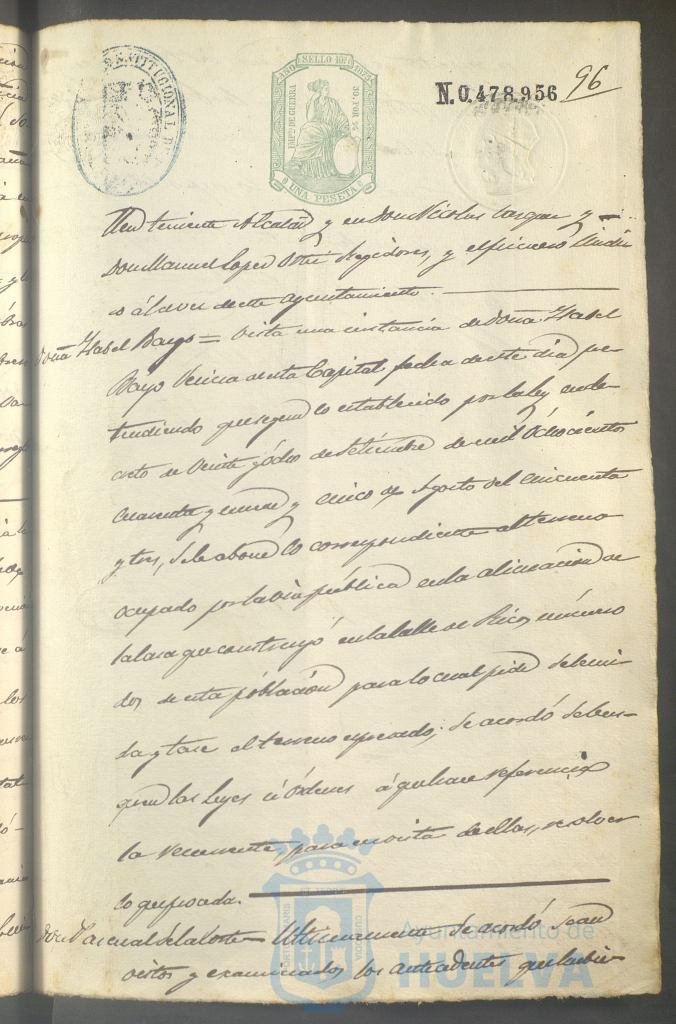 CONSTITUCIONAL
AÑO SELLO 10º 1875
IMPtº DE GUERRA
50 POR %
UNA PESETA
N.0.478,956
96
teniente Alcalde y en Don Nicolas Vazquez y
Don Manuel Lopez Regidores, y el primero Sindi
co á la vez de este Ayuntamiento.
Doña Isabel Bayo = Vista una instancia de Doña Isabel
Bayo Vecina de esta Capital fecha de este dia pre
tendiendo que segun lo establecido por la ley
de Veinte y ócho de Setiembre de mil óchocientos
cuarenta y nueve y cinco de Agosto del cincuenta
y tres, se le abone lo correspondiente al terreno
ocupado por la via pública en la alineacion de
la casa que construyó en la Calle de Rico, número
dos de esta poblacion para lo cual pide se le mi
da y tase el terreno espresado; se acordó se bus-
quen las Leyes ú Ordenes á que hace referencia
la recurrente para en vista de ellas, resolver
lo que proceda.
Don Pascual de la Corte = Ultimamente se acordó sean
vistos y examinados los antecedentes que hubie
Ayuntamiento de
HUELVA